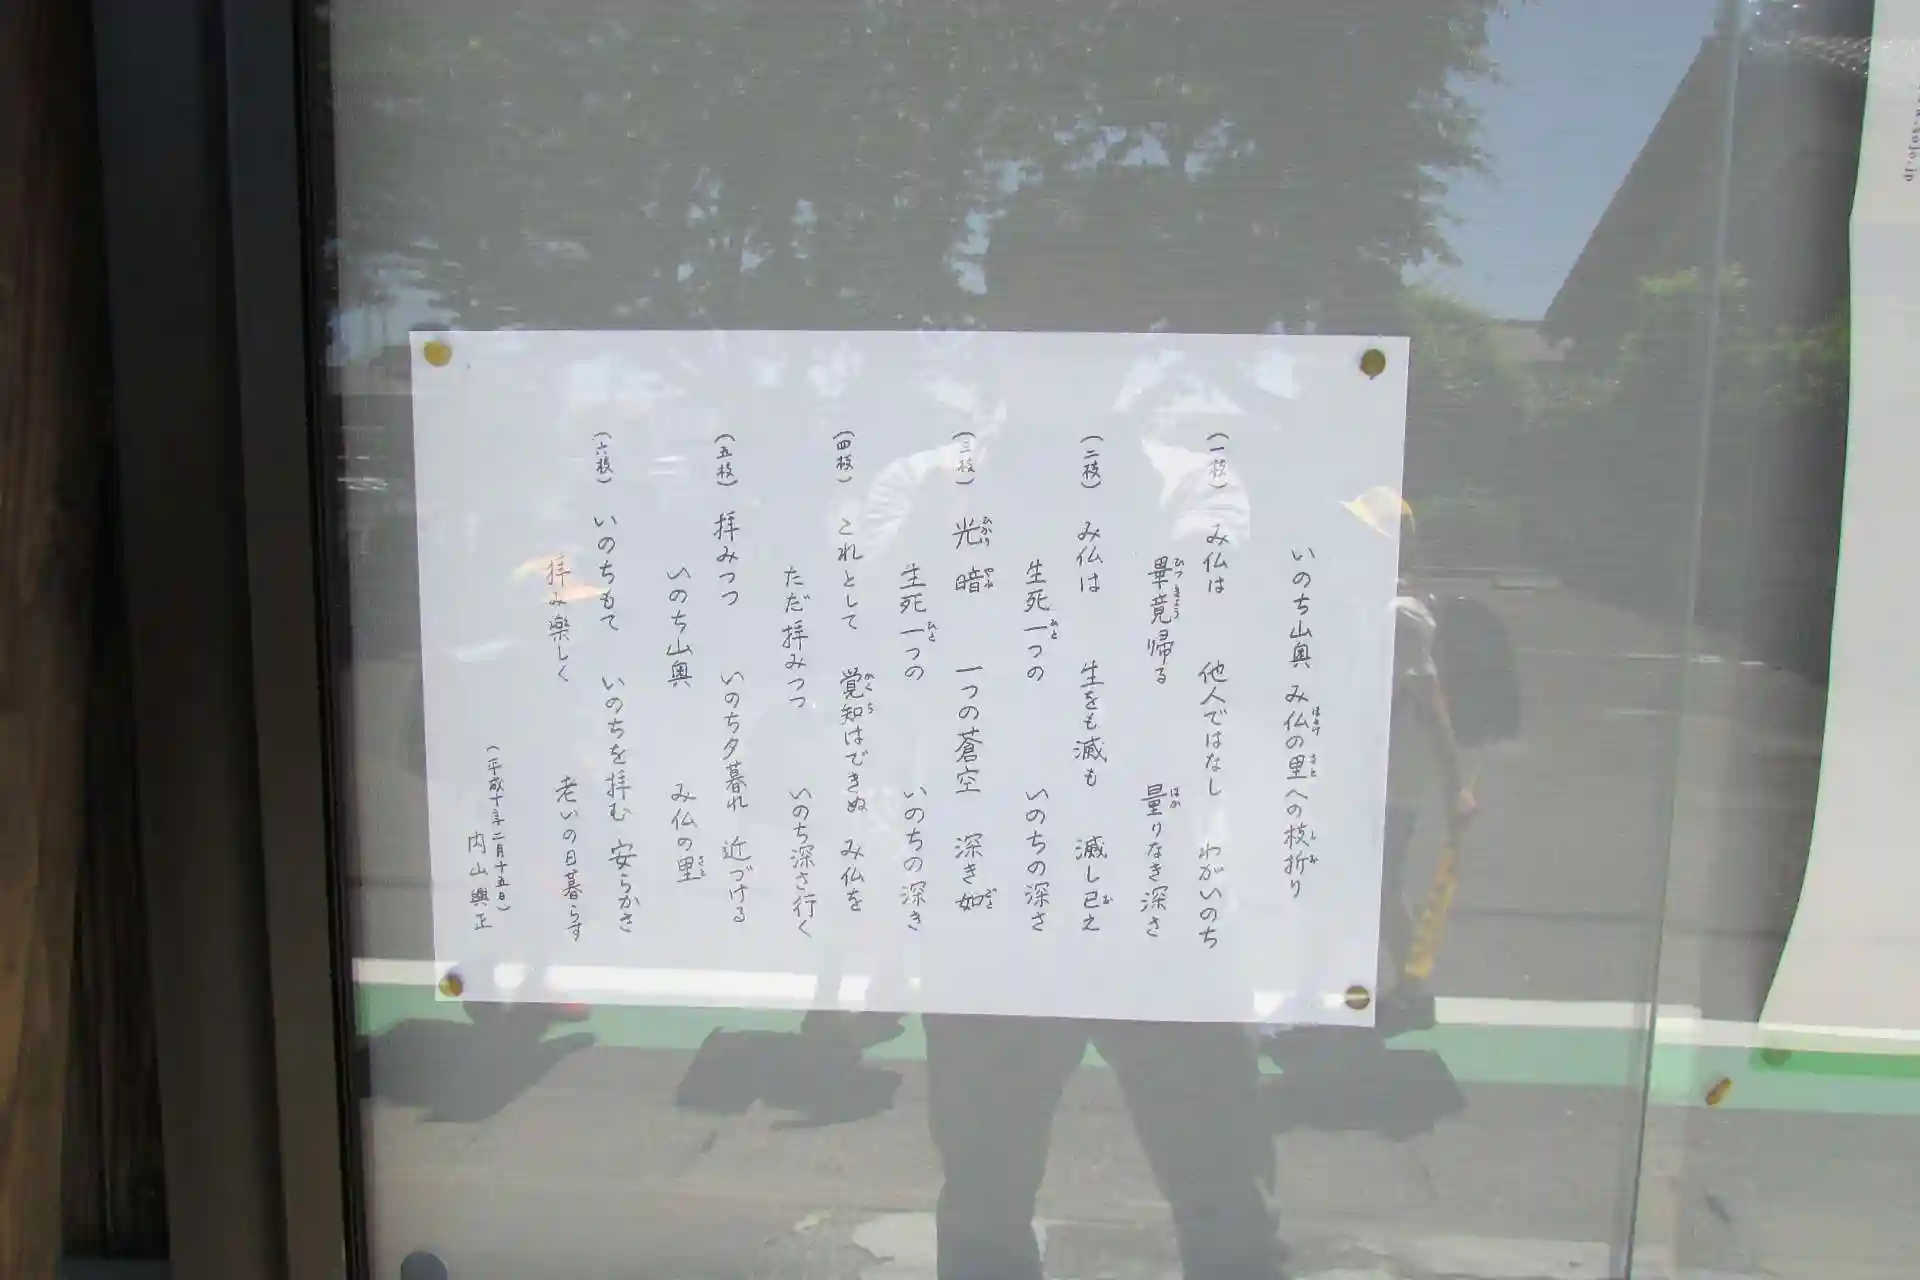 いのち山奥 み仏の里への枝折り
(一枝) み仏は 他人ではなし わがいのち
畢竟帰る 量りなき深さ
(二枝) み仏は 生をも滅も 滅し已え
生死一つの いのちの深さ
(三枝) 光暗 一つの蒼空 深き如
生死一つの いのちの深き
(四枝) これとして 覚知はできぬ み仏を
ただ拝みつつ いのち深さ行く
(五枝) 拝みつつ いのち夕暮れ 近づける
いのち山奥 み仏の里
(六枝) いのちもて いのちを拝む 安らかさ
拝み楽しく 老いの日暮らす
(平成十年二月十五日)
内山興正